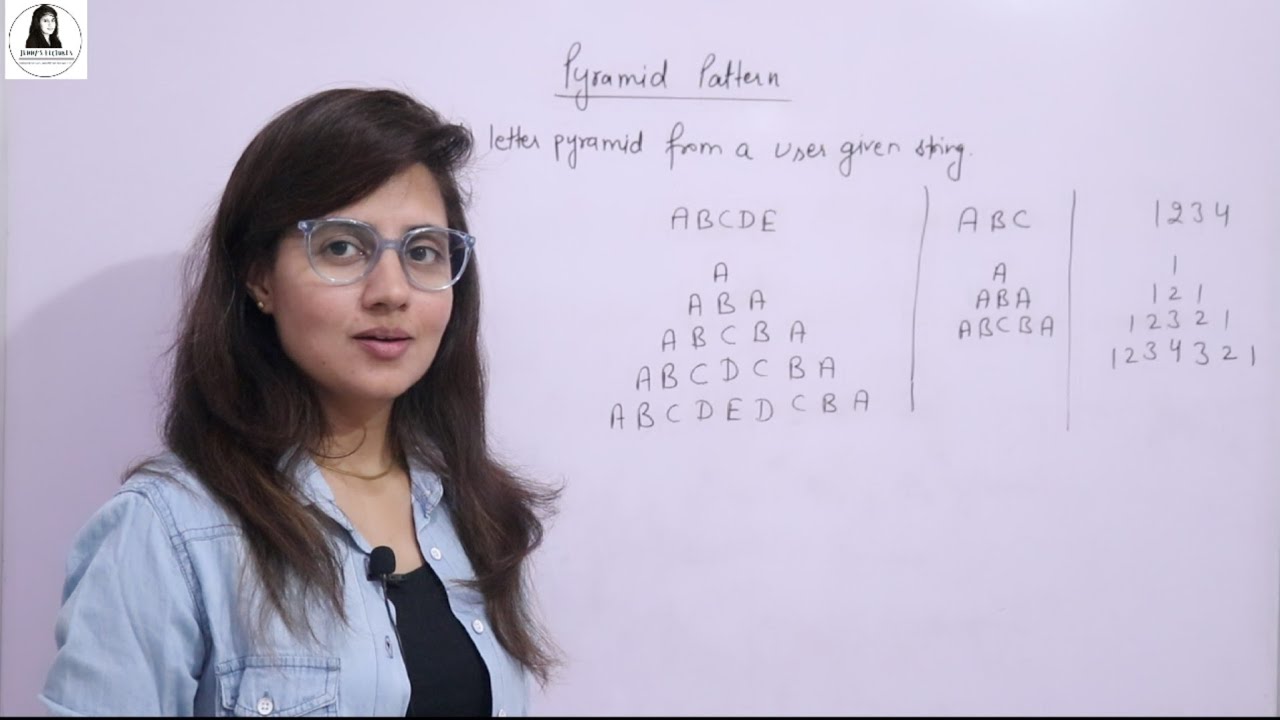 JENNY'S LECTURES
Pyramid Pattern
letter pyramid from a user given string.
ABCDE
A
A B A
A B C B A
A B C D C B A
A B C D E D C B A
A B C
A
ABA
ABCBA
1 2 3 4
1
1 2 1
1 2 3 2 1
1 2 3 4 3 2 1